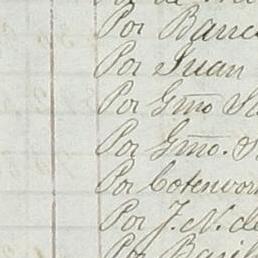 Por Banc
Por Juan
Por Gmo S
Por Gmo. S
Por Cotenwor
Por J. N. de
Por Basil